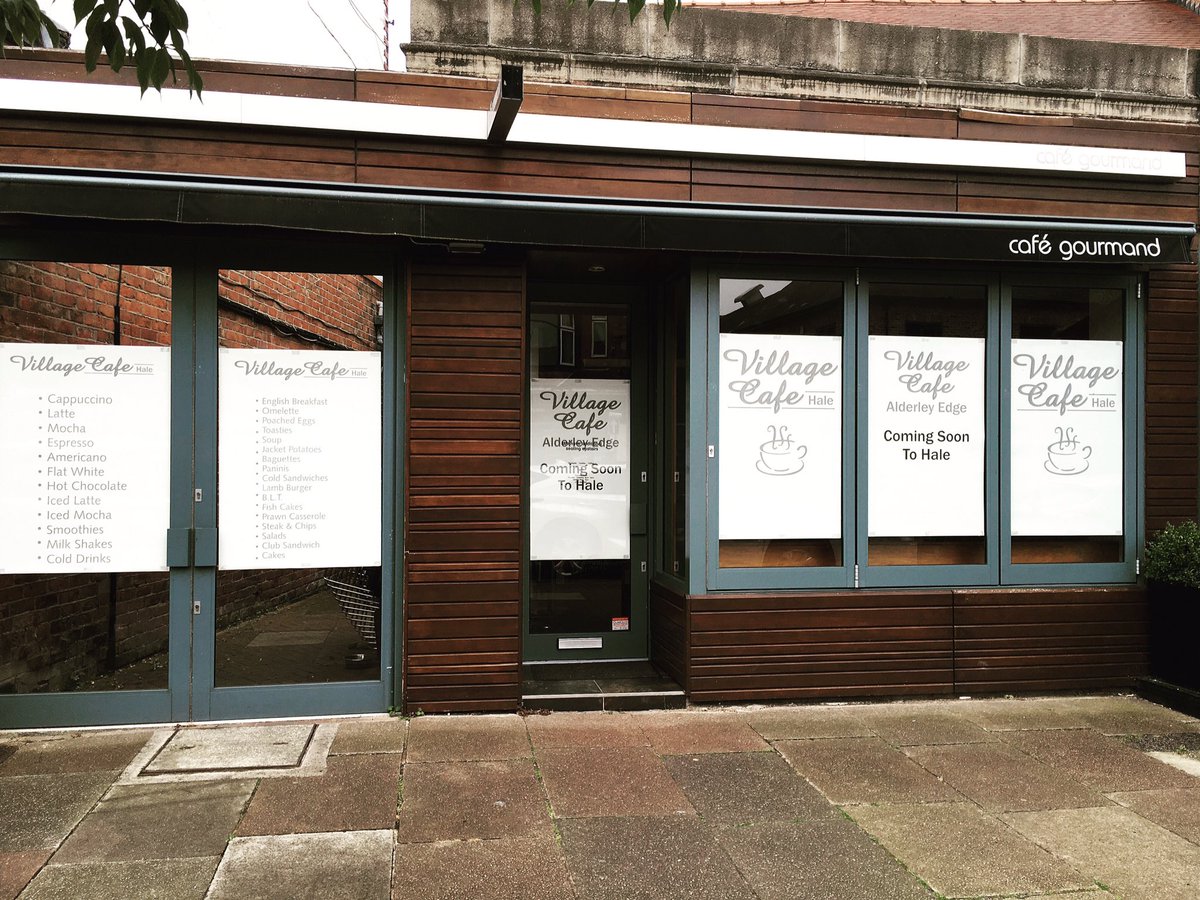 café gourmand
café gourmand
Village Cafe Hale
• Cappuccino
• Latte
• Mocha
• Espresso
• Americano
• Flat White
• Hot Chocolate
• Iced Latte
• Iced Mocha
• Smoothies
• Milk Shakes
• Cold Drinks
Village Cafe Hale
• English Breakfast
• Omelette
• Poached Eggs
• Toasties
• Soup
• Jacket Potatoes
• Baguettes
• Paninis
• Cold Sandwiches
• Lamb Burger
• B.L.T
• Fish Cakes
• Prawn Casserole
• Steak & Chips
• Salads
• Club Sandwich
• Cakes
Village
Cafe
Alderley Edge
seating upstairs
Coming Soon
To Hale
Village
Cafe Hale
Village
Cafe
Alderley Edge
Coming Soon
To Hale
Village
Cafe Hale